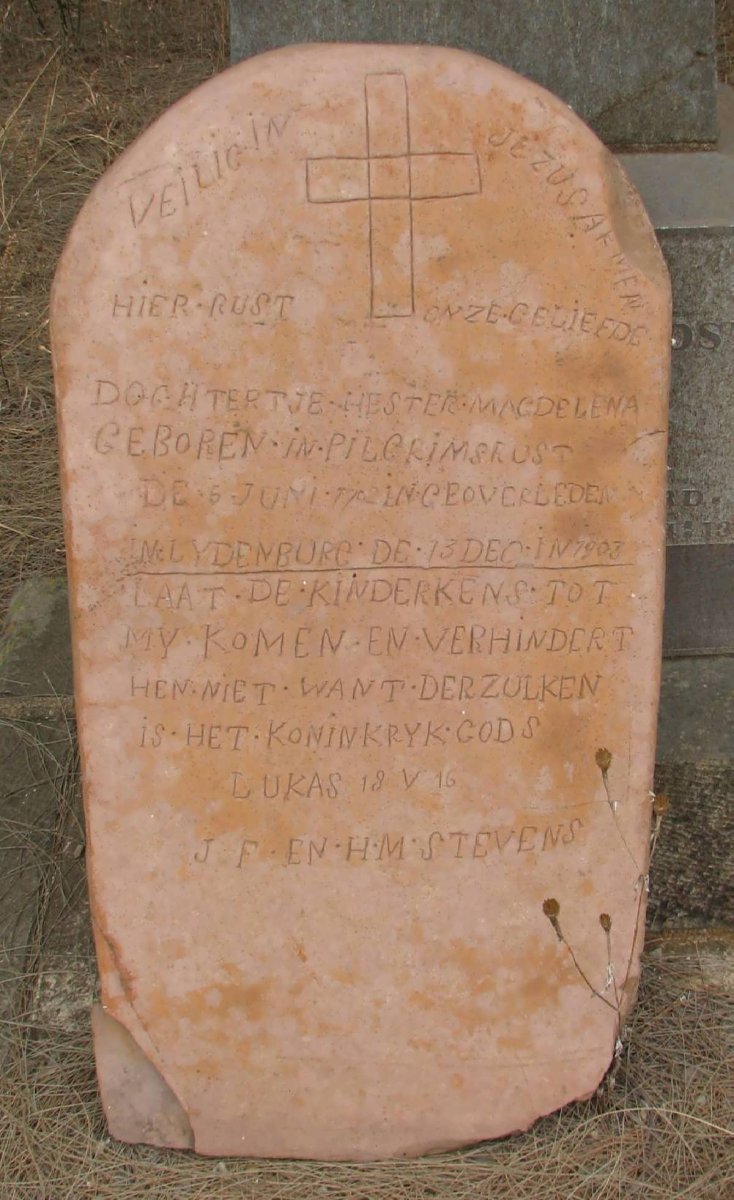 VEILIG IN JEZUS ARMEN
HIER·RUST ONZE·GELIEFDE
DOCHTERTJE·HESTER·MAGDELENA
GEBOREN·IN·PILGRIMSRUST
DE·6 JUNI· EN OVERLEDEN
IN·LYDENBURG·DE·13 DEC·IN 1903
LAAT·DE·KINDERKENS·TOT
MY·KOMEN·EN·VERHINDERT
HEN·NIET·WANT·DERZULKEN
IS·HET·KONINKRYK·GODS
LUKAS 18 V 16
J F·EN·H·M·STEVENS